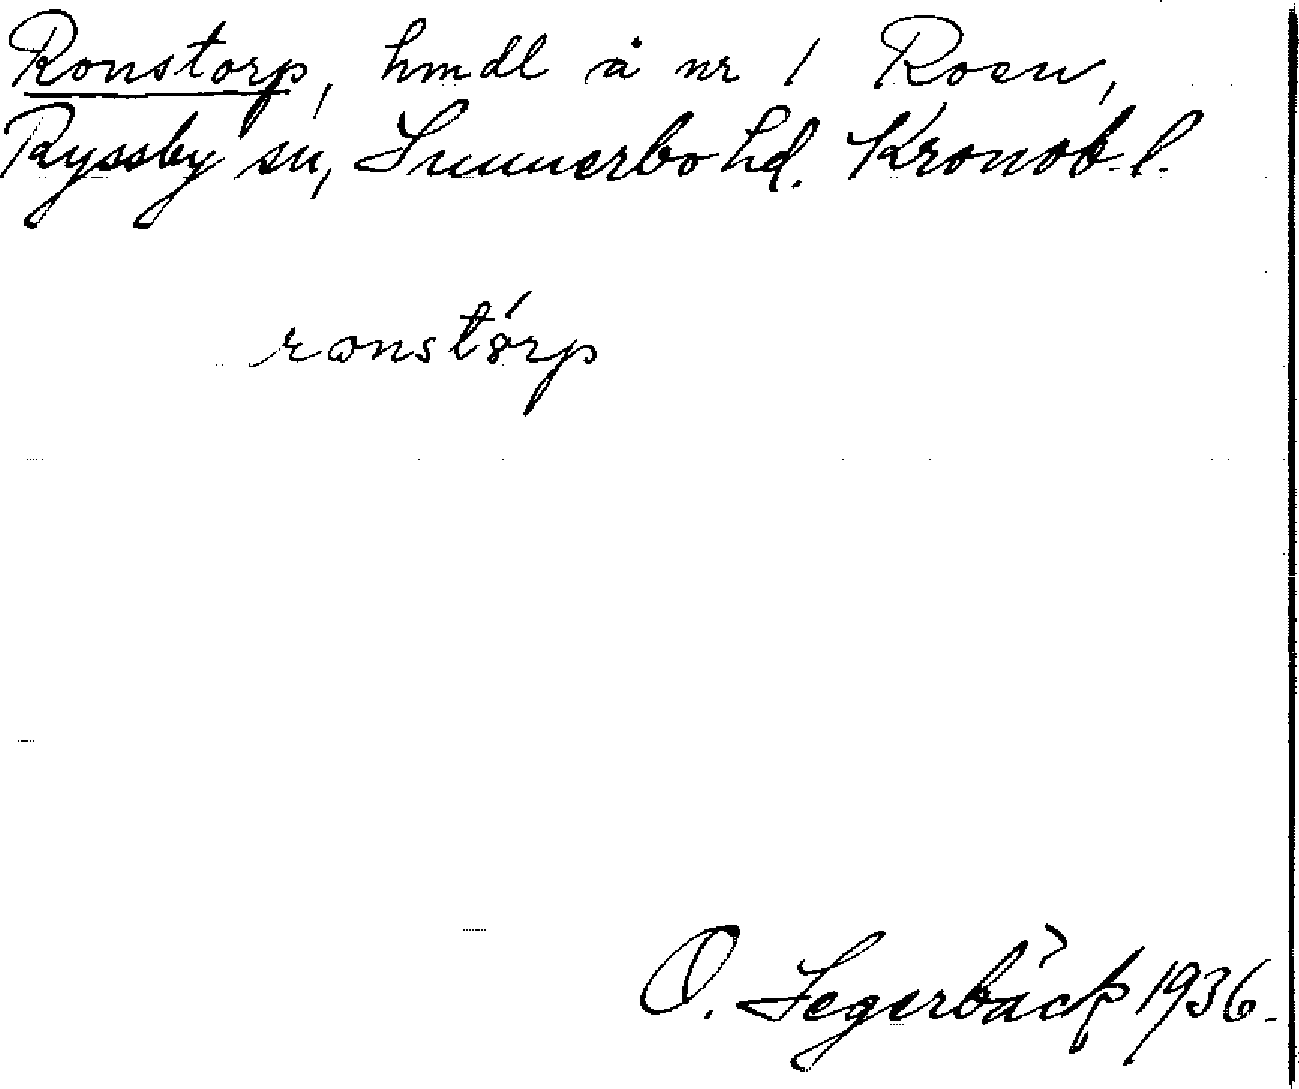 Ronstorp, hmdl å nr 1 Roen,
Ryssby sn, Sunnerbo hd. Kronob. l.
ronstórp
O. Segerbäck 1936.